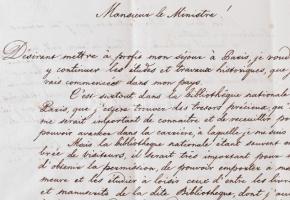 Monsieur le Ministre!
Désirant mettre à profit mon séjour à Paris, je voud
y continuer les études et travaux historiques, que
vais commencées dans mon pays.
C'est surtout dans la bibliothèque nationale
Paris, que j'espère trouver des tresors précieux, qu'
me serait important de connaître et de recueillir po
pouvoir avancer dans la carrière, à laquelle je me suis
Mais la bibliothèque nationale étant souvent en
brée de visiteurs, il serait très important pour
d'obtenir la permission, de pouvoir emporter à ma
meure et les étudier à loisir ceux d'entre les livres
et manuscrits de la dite Bibliothèque, dont j'au